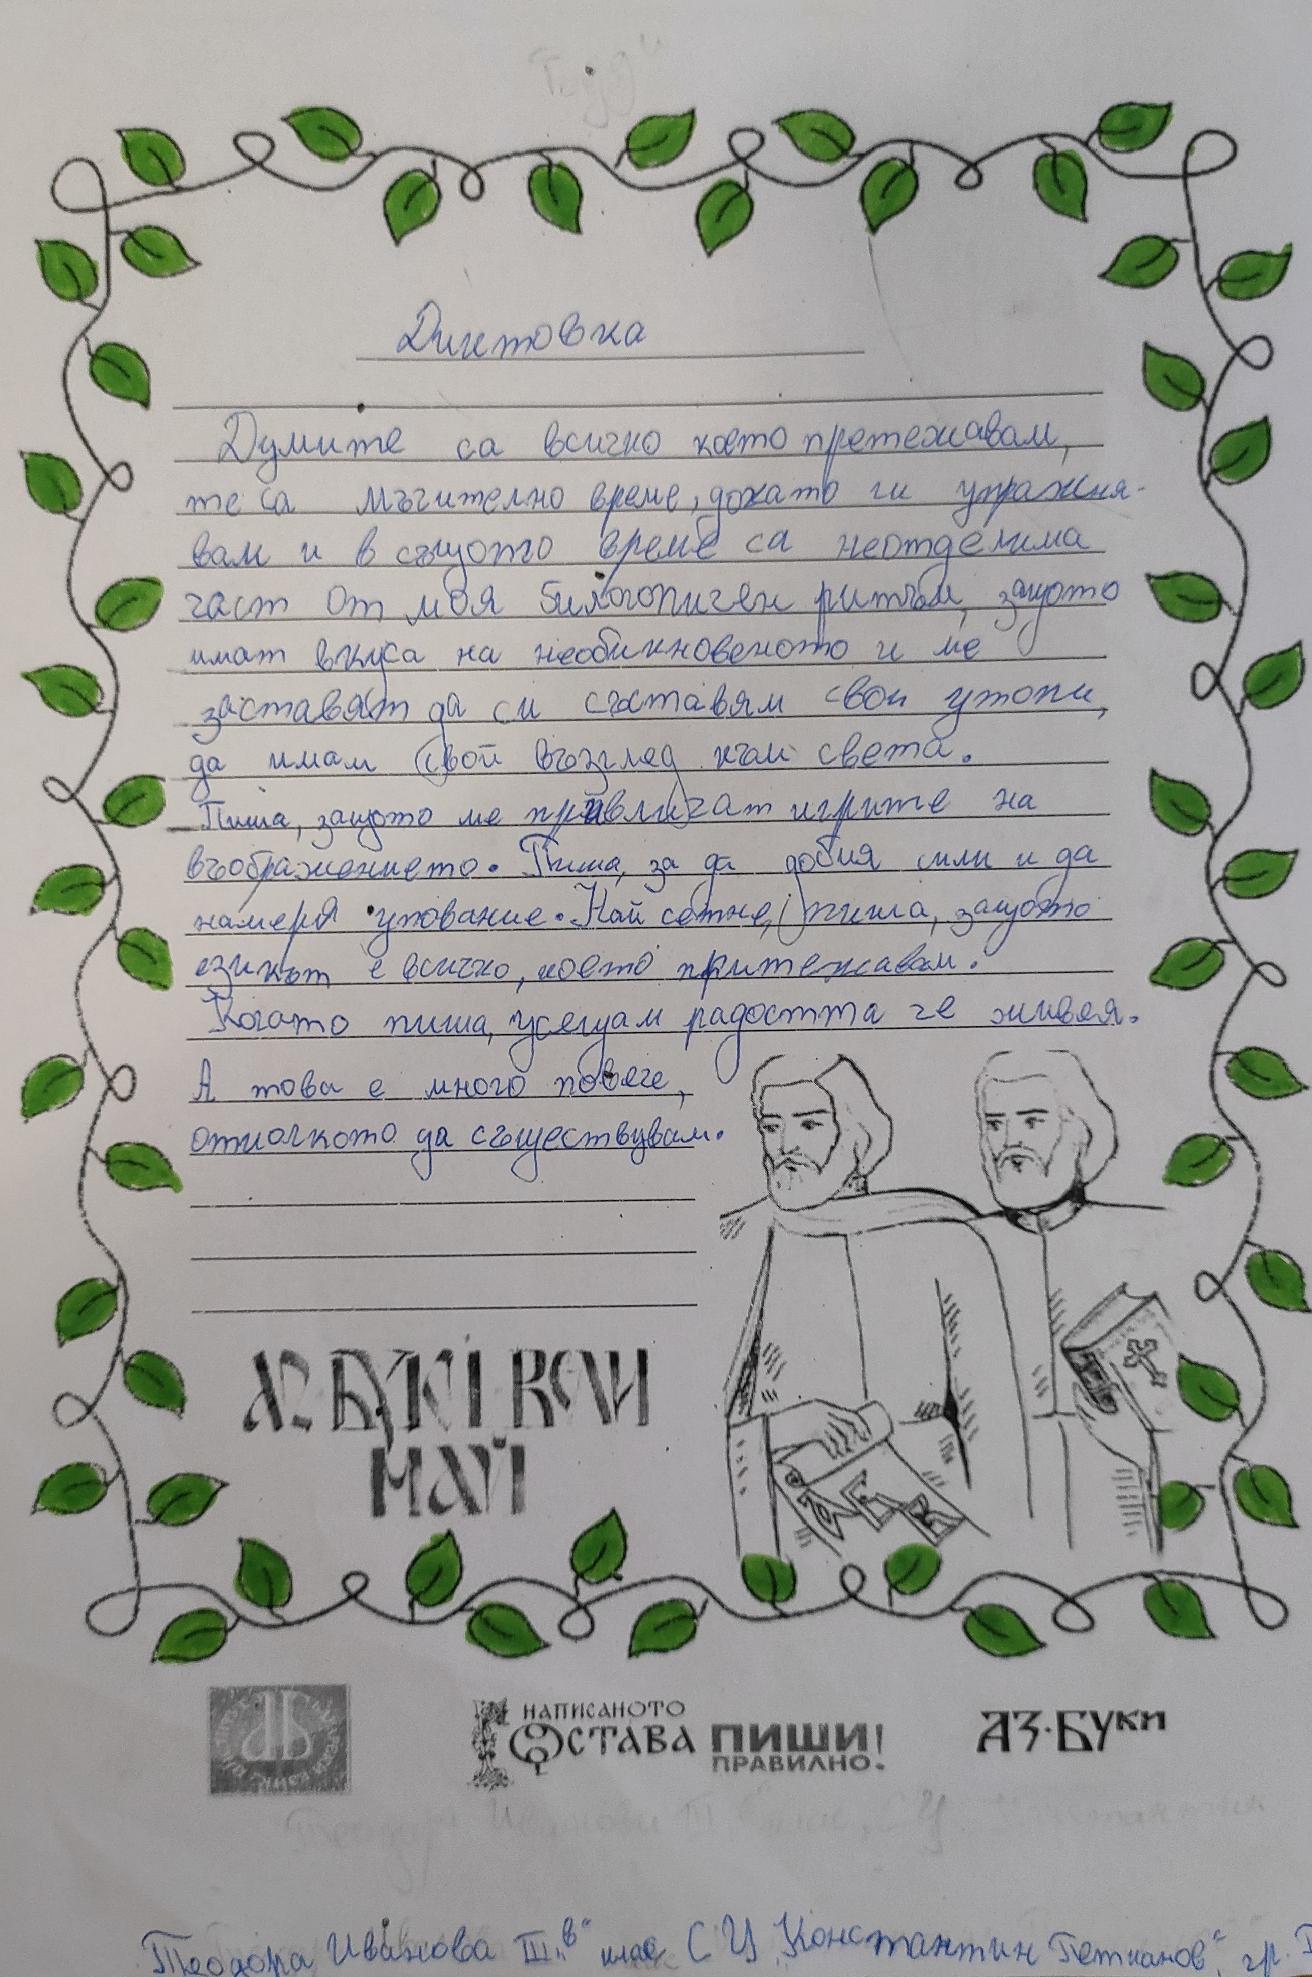 Диктовка
Думите са всичко което претежавам,
те са мъчително време, докато ги упражня-
вам и в същото време са неотделима
част от моя ритъм, защото
имат вкуса на необикновеното и ме
заставят да си съставям свои утопи,
да имам свой възглед към света.
Пиша, защото ме привличат игрите на
въображението. Пиша, за да добия сили и да
намеря упование. Най сетне, пиша, защото
езикът е всичко, което притежавам.
Когато пиша, усещам радостта че живея.
А това е много повече,
отколкото да съществувам.
АЗ БУКИ ВЕДИ
МАЙ
НАПИСАНОТО
ОСТАВА ПИШИ!
ПРАВИЛНО!
АЗ·БУКИ
Теодора Иванова III „в“ клас СУ „Константин Петканов“, гр.